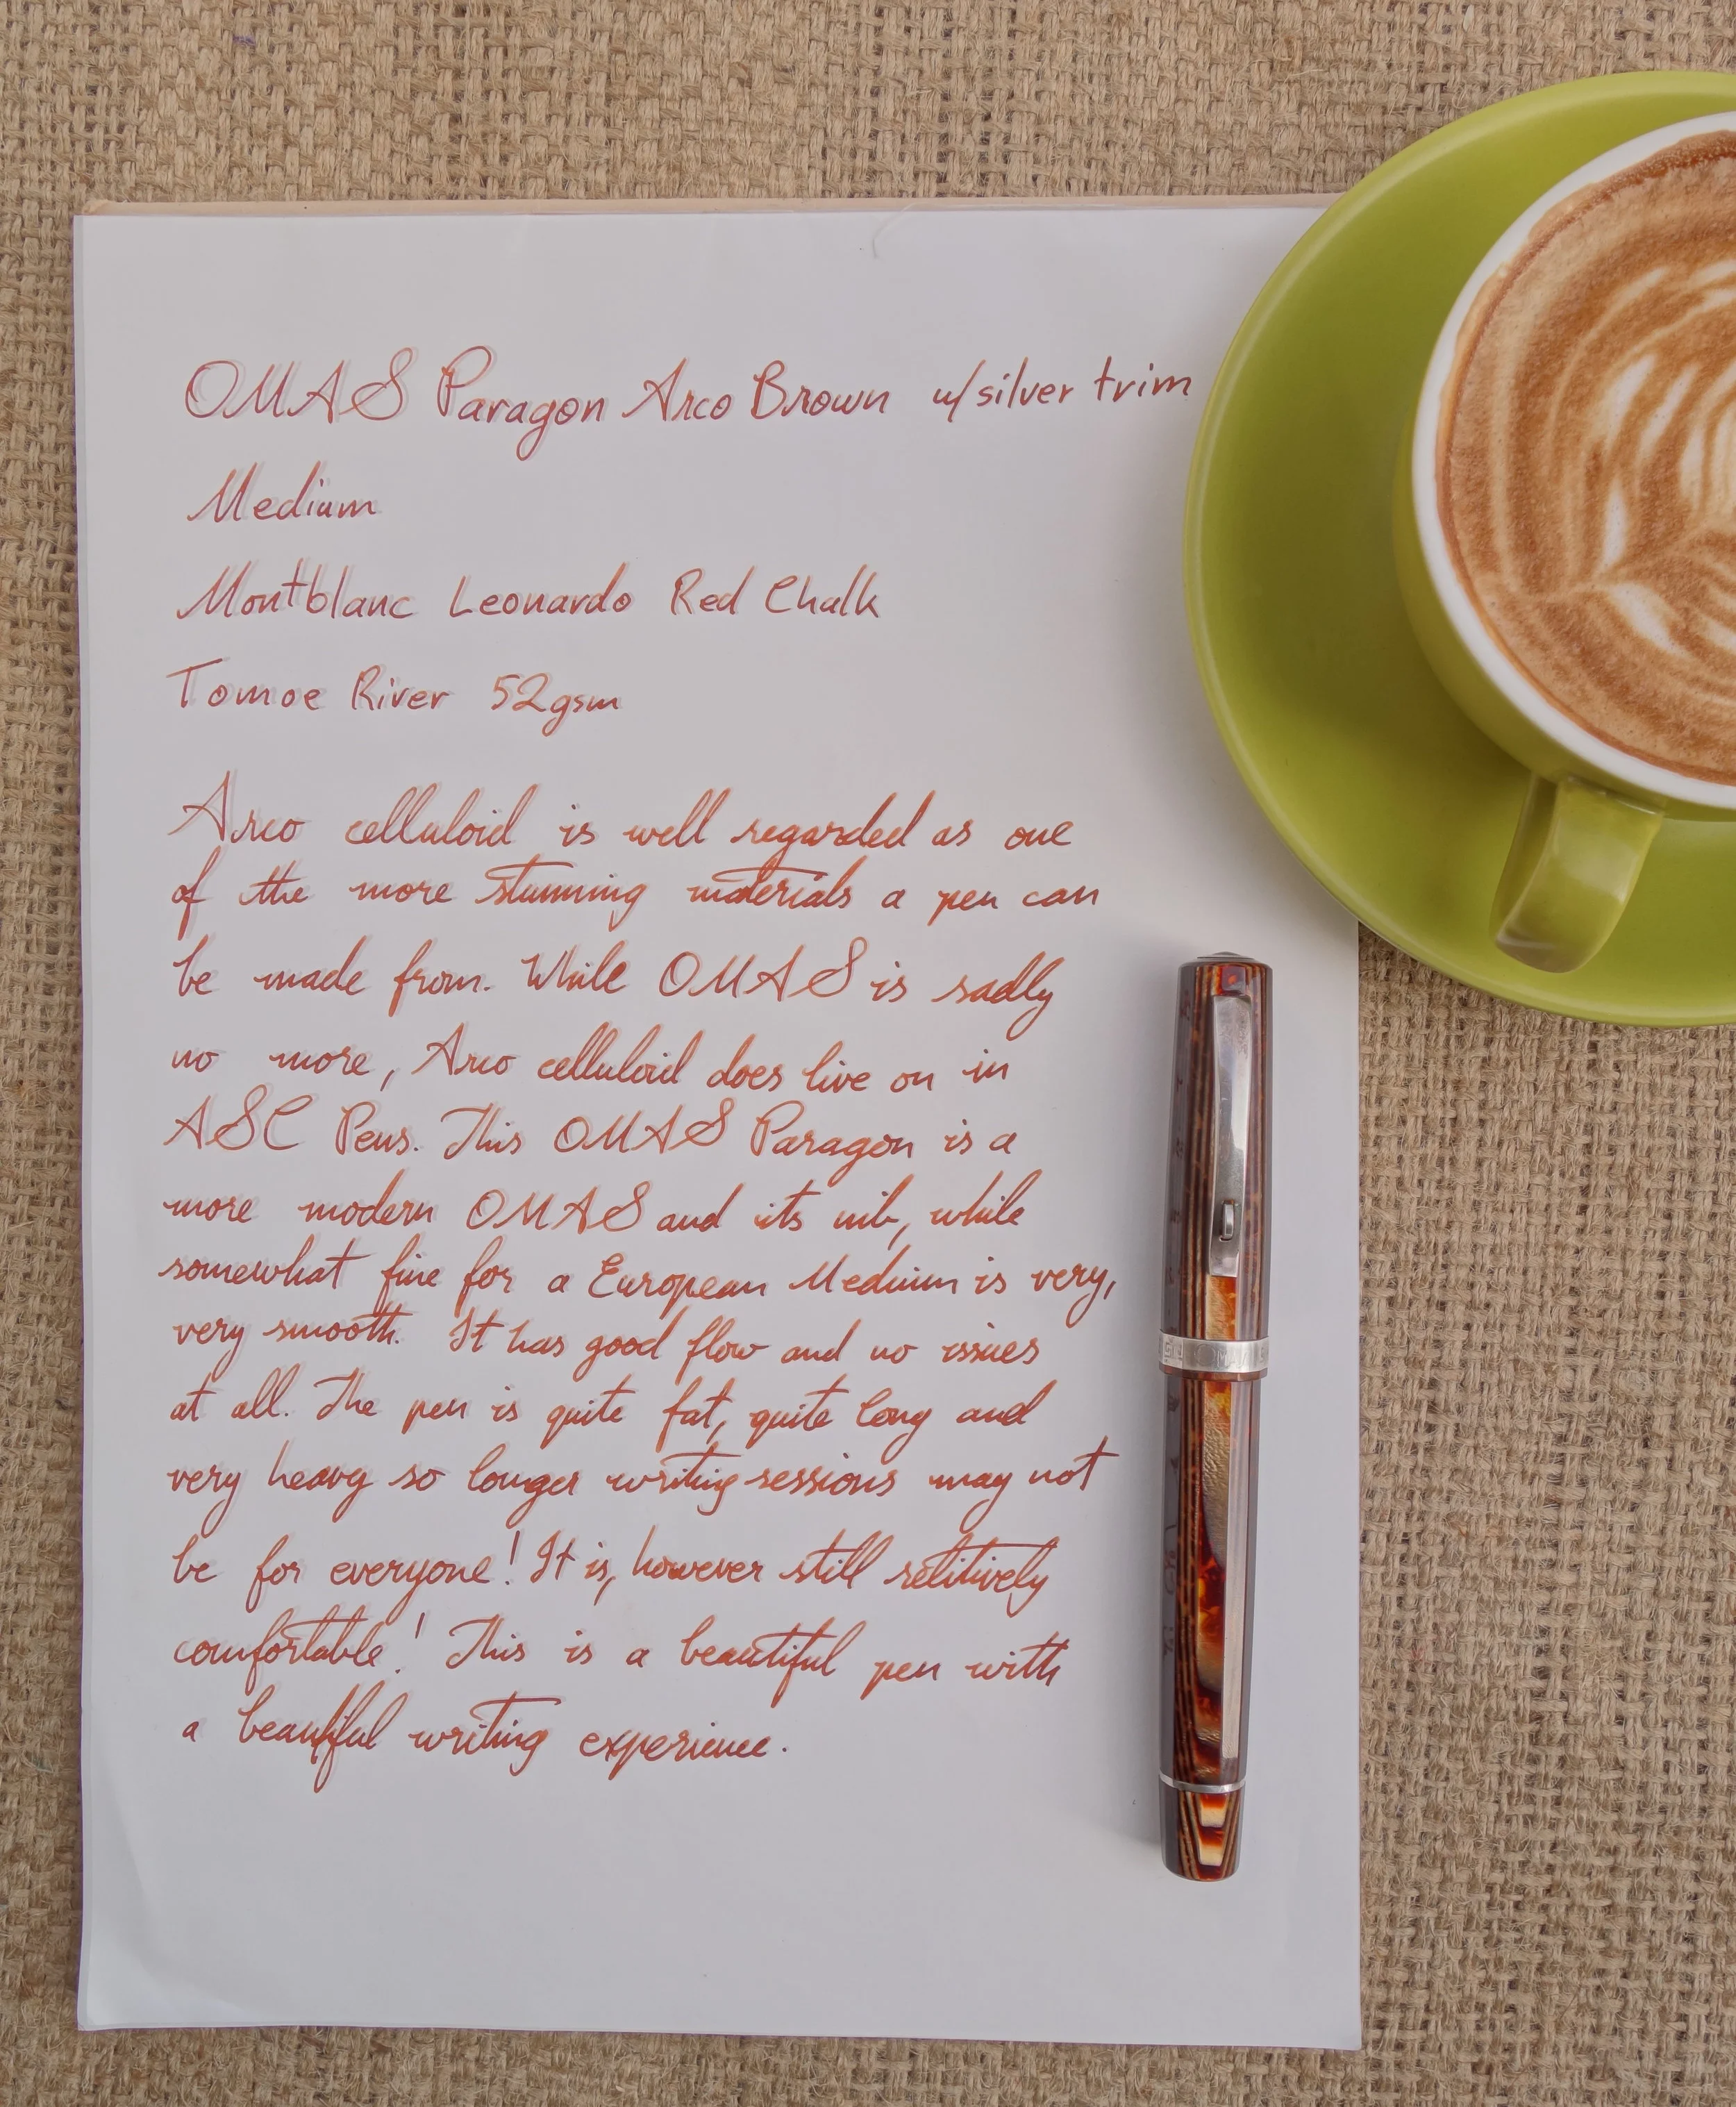 OMAS Paragon Arco Brown w/silver trim
Medium
Montblanc Leonardo Red Chalk
Tomoe River 52gsm
Arco celluloid is well regarded as one
of the more stunning materials a pen can
be made from. While OMAS is sadly
no more, Arco celluloid does live on in
ASC Pens. This OMAS Paragon is a
more modern OMAS and its nib, while
somewhat fine for a European Medium is very,
very smooth. It has good flow and no issues
at all. The pen is quite fat, quite long and
very heavy so longer writing sessions may not
be for everyone! It is, however still relitively
comfortable! This is a beautiful pen with
a beautiful writing experience.